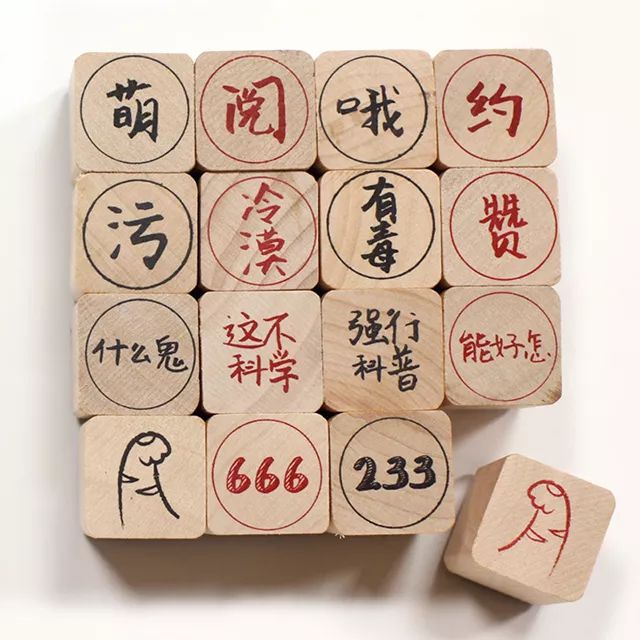 萌
阅
哦
约
污
冷
漠
有
毒
赞
什么鬼
这不
科学
强行
科普
能好怎
666
233